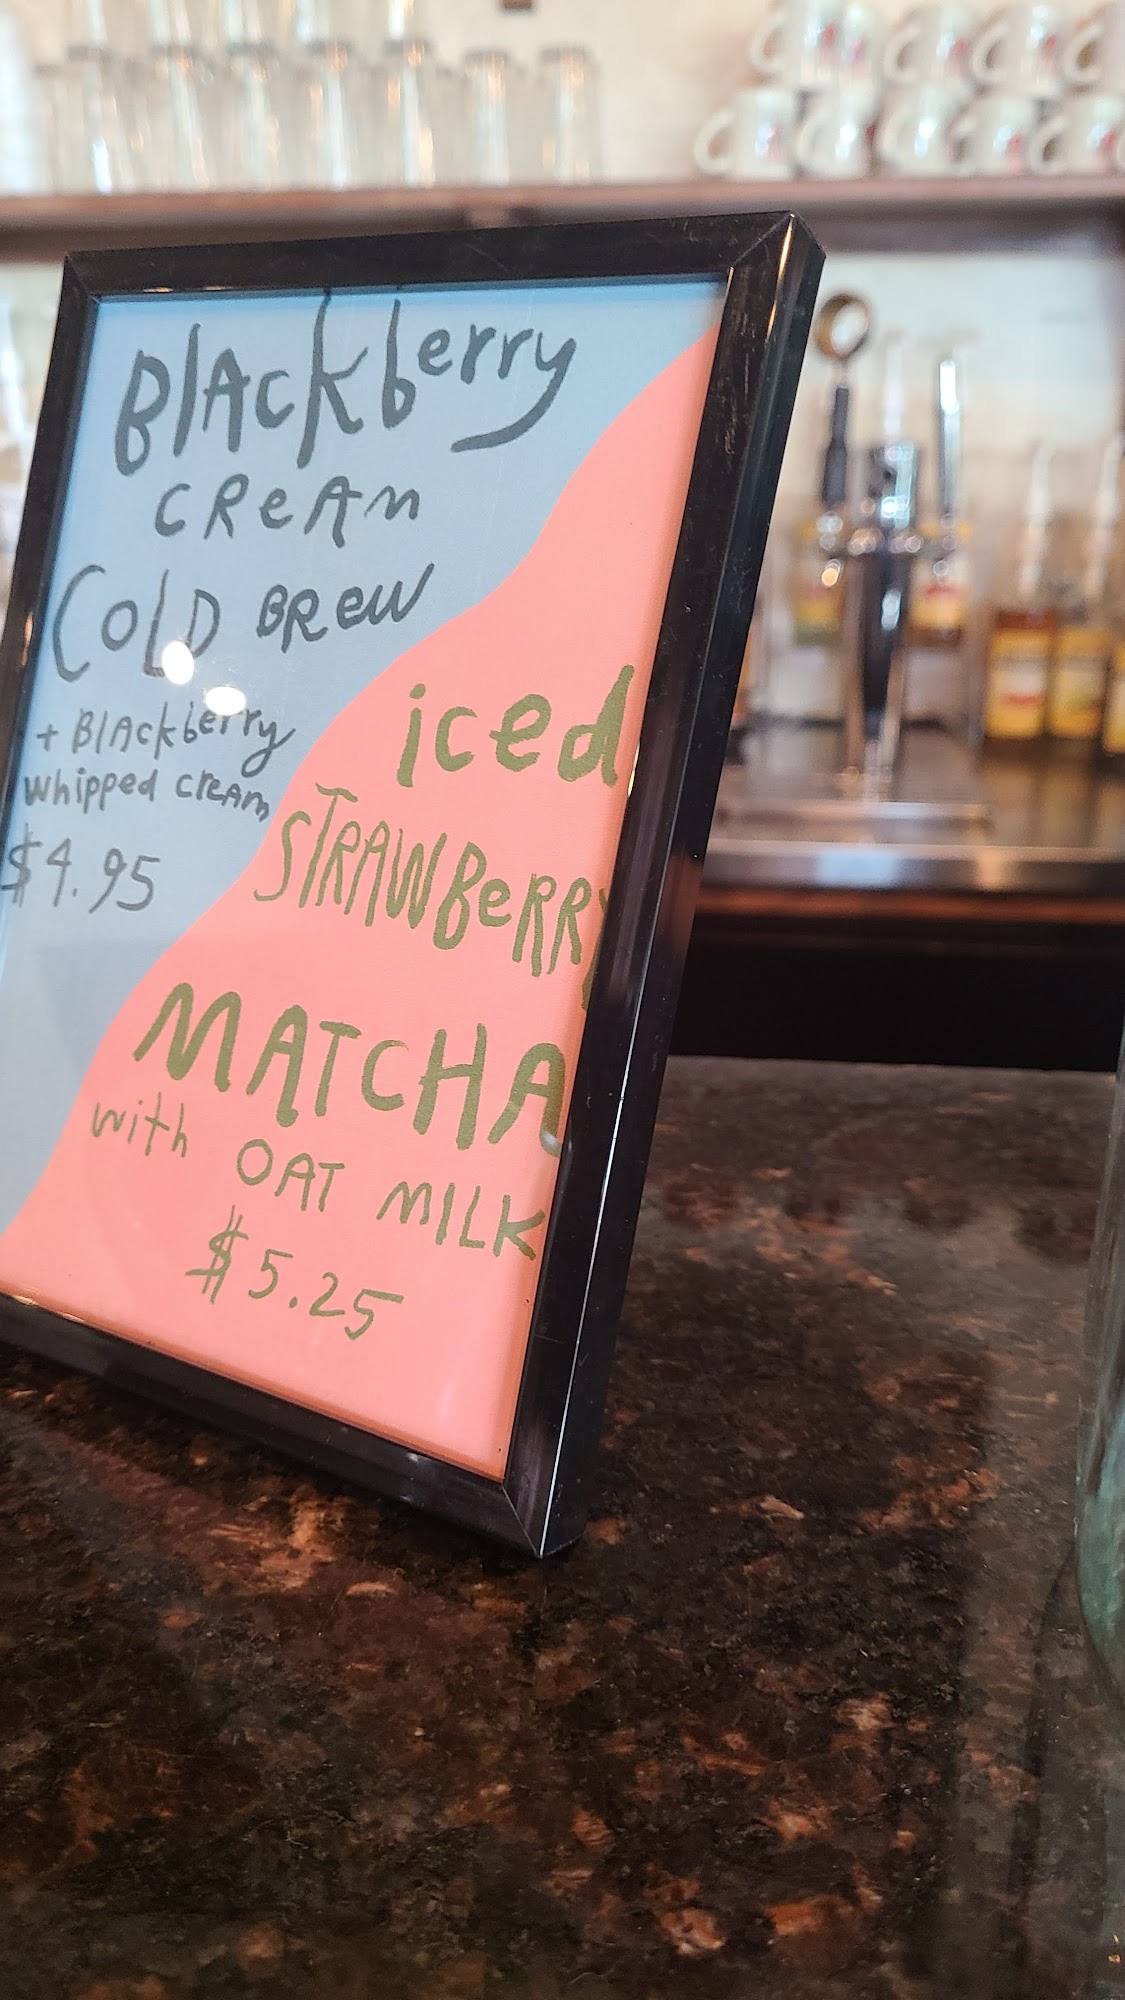 Blackberry
CReAm
COLD BREW
+ Blackberry
whipped cream
$4.95
iced
STRAWBeRRY
MATCHA
with OAT MILK
$5.25